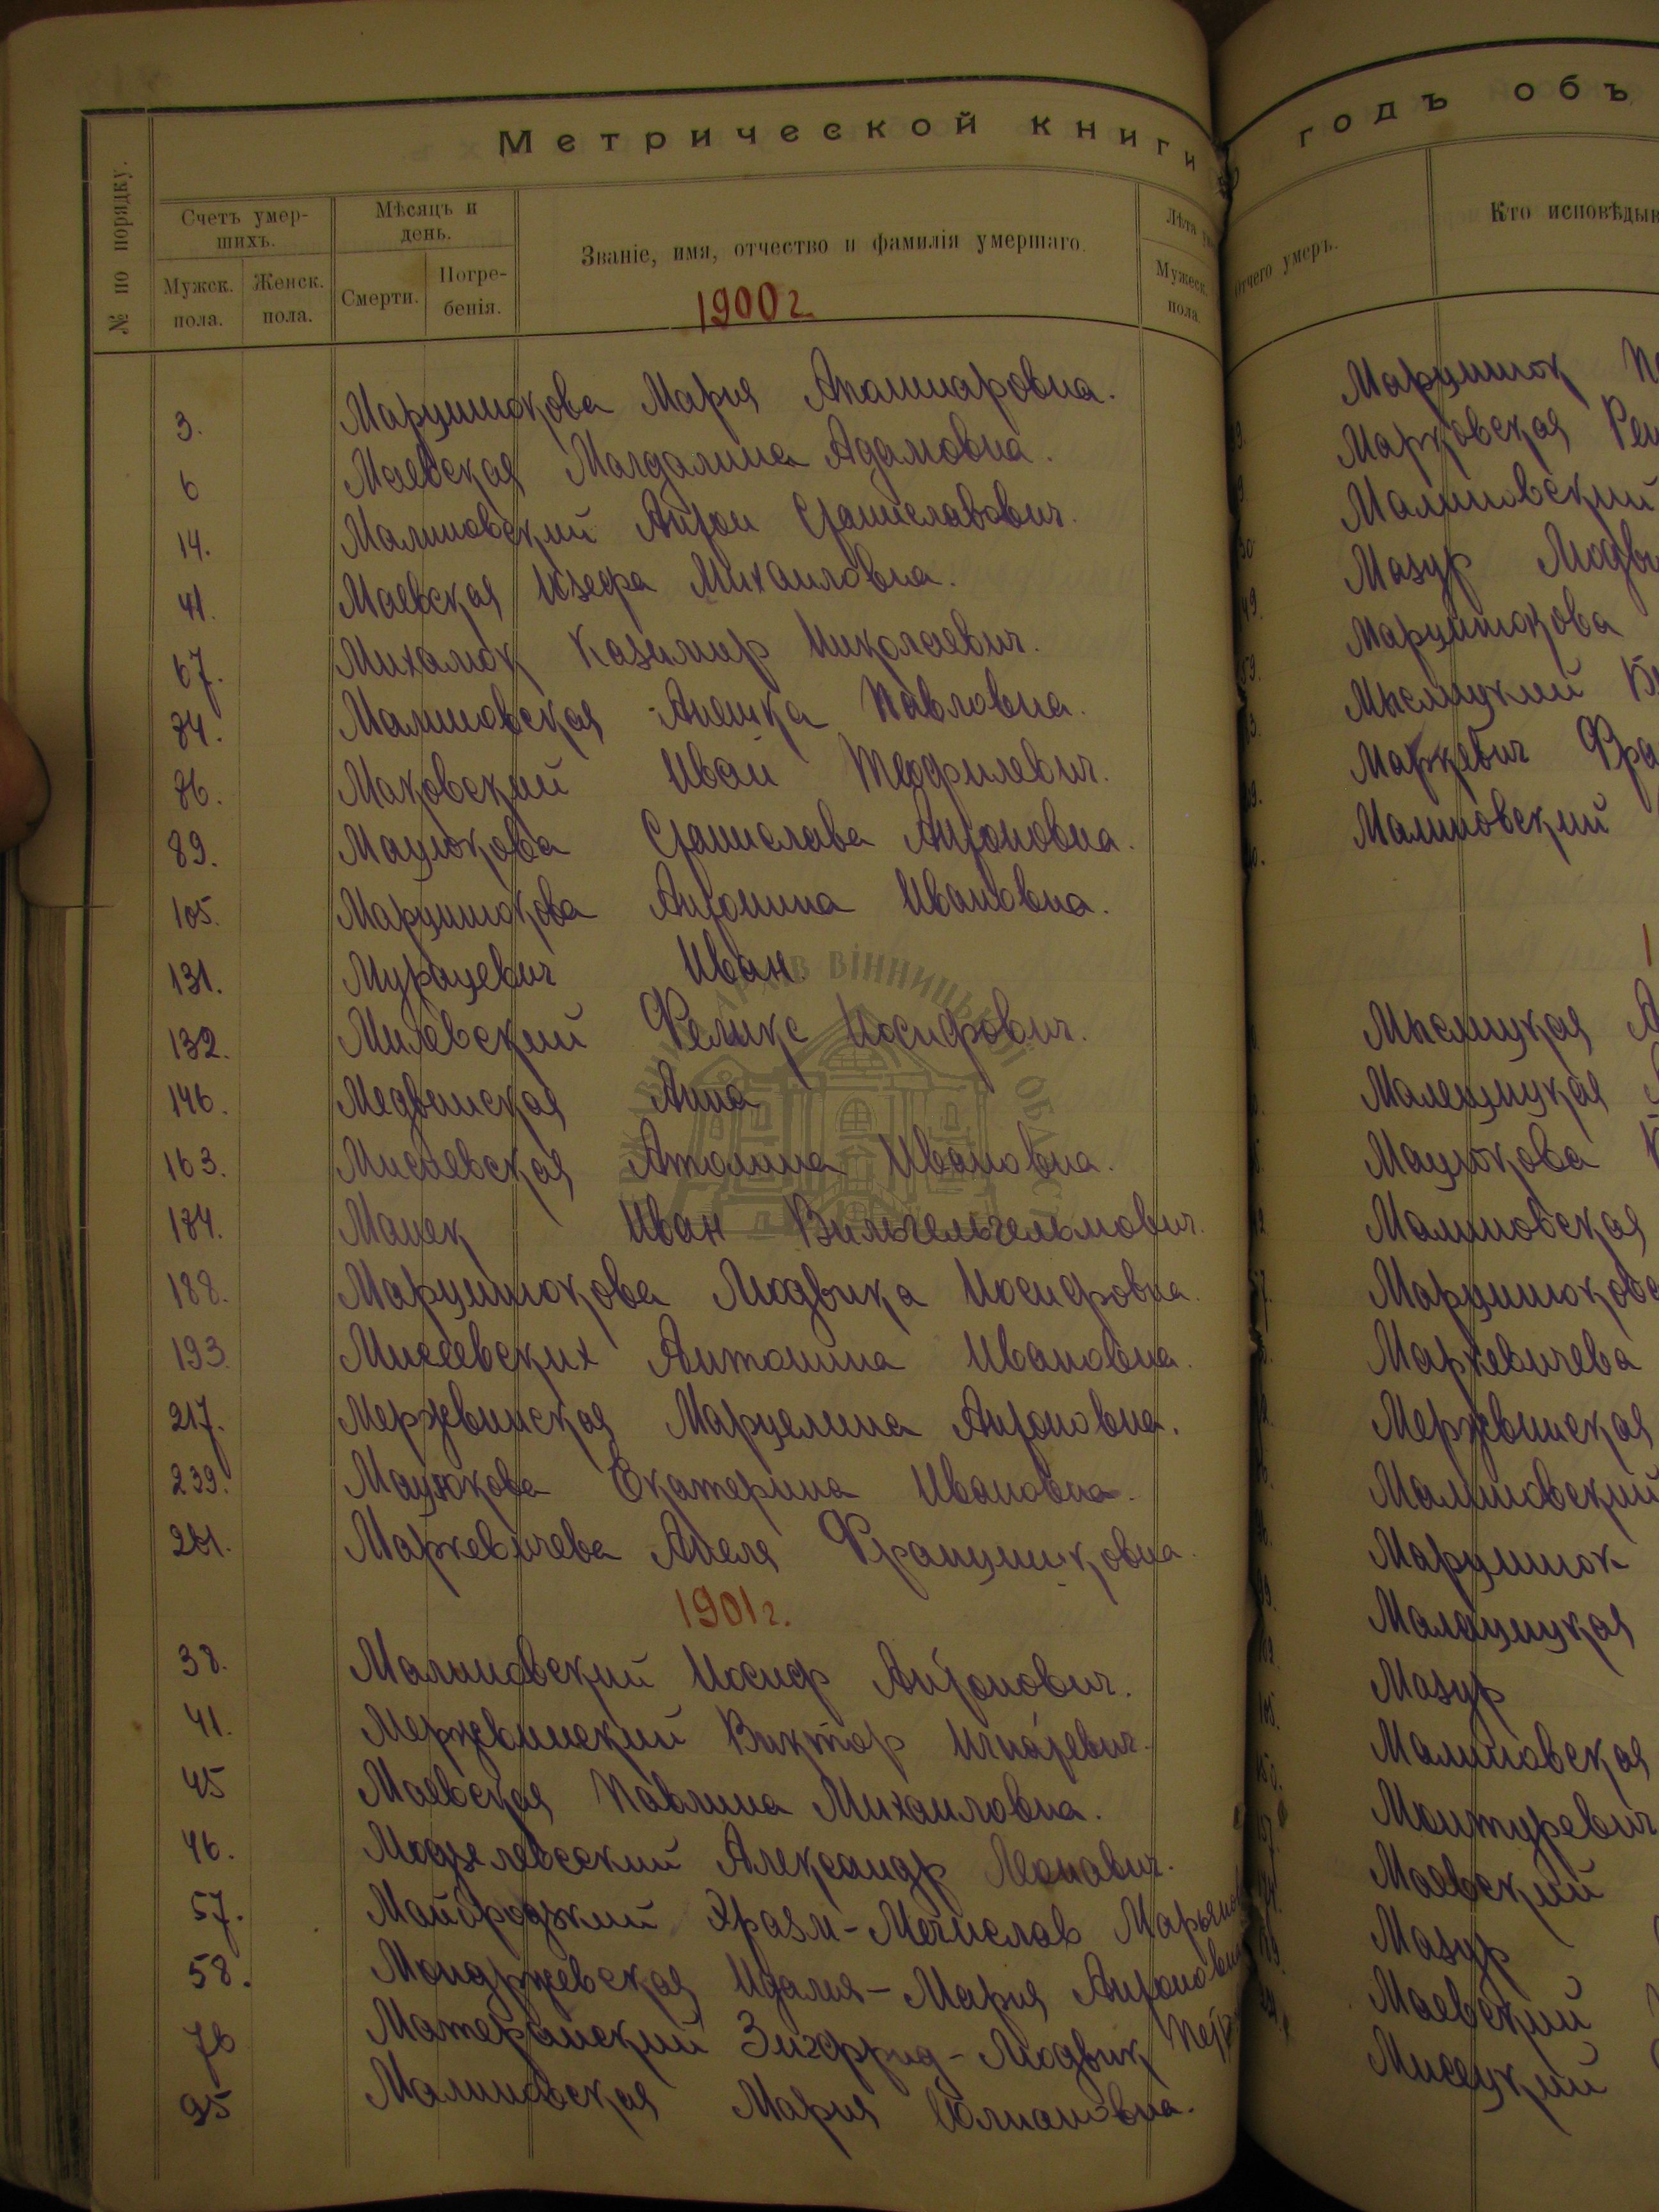 Метрической книги
№ по порядку.
Счетъ умер-
шихъ.
Мужск.
пола.
Женск.
пола.
Мѣсяцъ и
день.
Смерти.
Погре-
бенія.
Званіе, имя, отчество и фамилія умершаго.
Лѣта
Мужеск.
пола.
1900 г.
3. Марцинюкова Мария Апалинаровна.
6 Маевская Магдалина Адамовна.
14. Малиновский Антон Станиславович.
41. Маевская Юзефа Михаиловна.
67. Михалюк Казимир Николаевич.
84. Малиновская Анешка Павловна.
86. Маковский Иван Теофилевич.
89. Мацюкова Станислава Антоновна.
105. Марцинюкова Антонина Ивановна.
131. Мурацевич Иван.
132. Милевский Феликс Иосифович.
146. Медвенская Анна
163. Мисевская Ивановна.
184. Манек Иван Вильгельгельмович.
188. Марцинюкова Людвика Иосифовна.
193. Мисеевских Антонина Ивановна.
217. Мержвинская Марцелина Антоновна.
239. Мацюкова Екатерина Ивановна.
261. Маркевичева Анеля Францишковна.
1901 г.
38. Малиновский Иосиф Антонович.
41. Мержвинский Виктор Игнатевич.
45 Маевская Павлина Михаиловна.
46. Модзелевский Александр Леонович.
57. Мечислав
58. Мондржевская Идалия-Мария Антоновна
76 Зигфрид-Людвик
95 Малиновская Мария Юлиановна.
годъ объ
отчего умеръ.
Кто исповѣдыв
Марцинюк
Марковская
Малиновский
Мазур Людви
Марцинюкова
Мыслицкий
Маркевич Фра
Малиновский
Мыслицкая
Малещицкая
Мацюкова
Малиновская
Марцинюкова
Маркевичева
Мержвинская
Малиновский
Марцинюк
Мазур
Малиновская
Монтуревич
Маевский
Мазур
Маевский
Мисецкий
АРХІВ ВІННИЦЬКОЇ ОБЛАСТІ